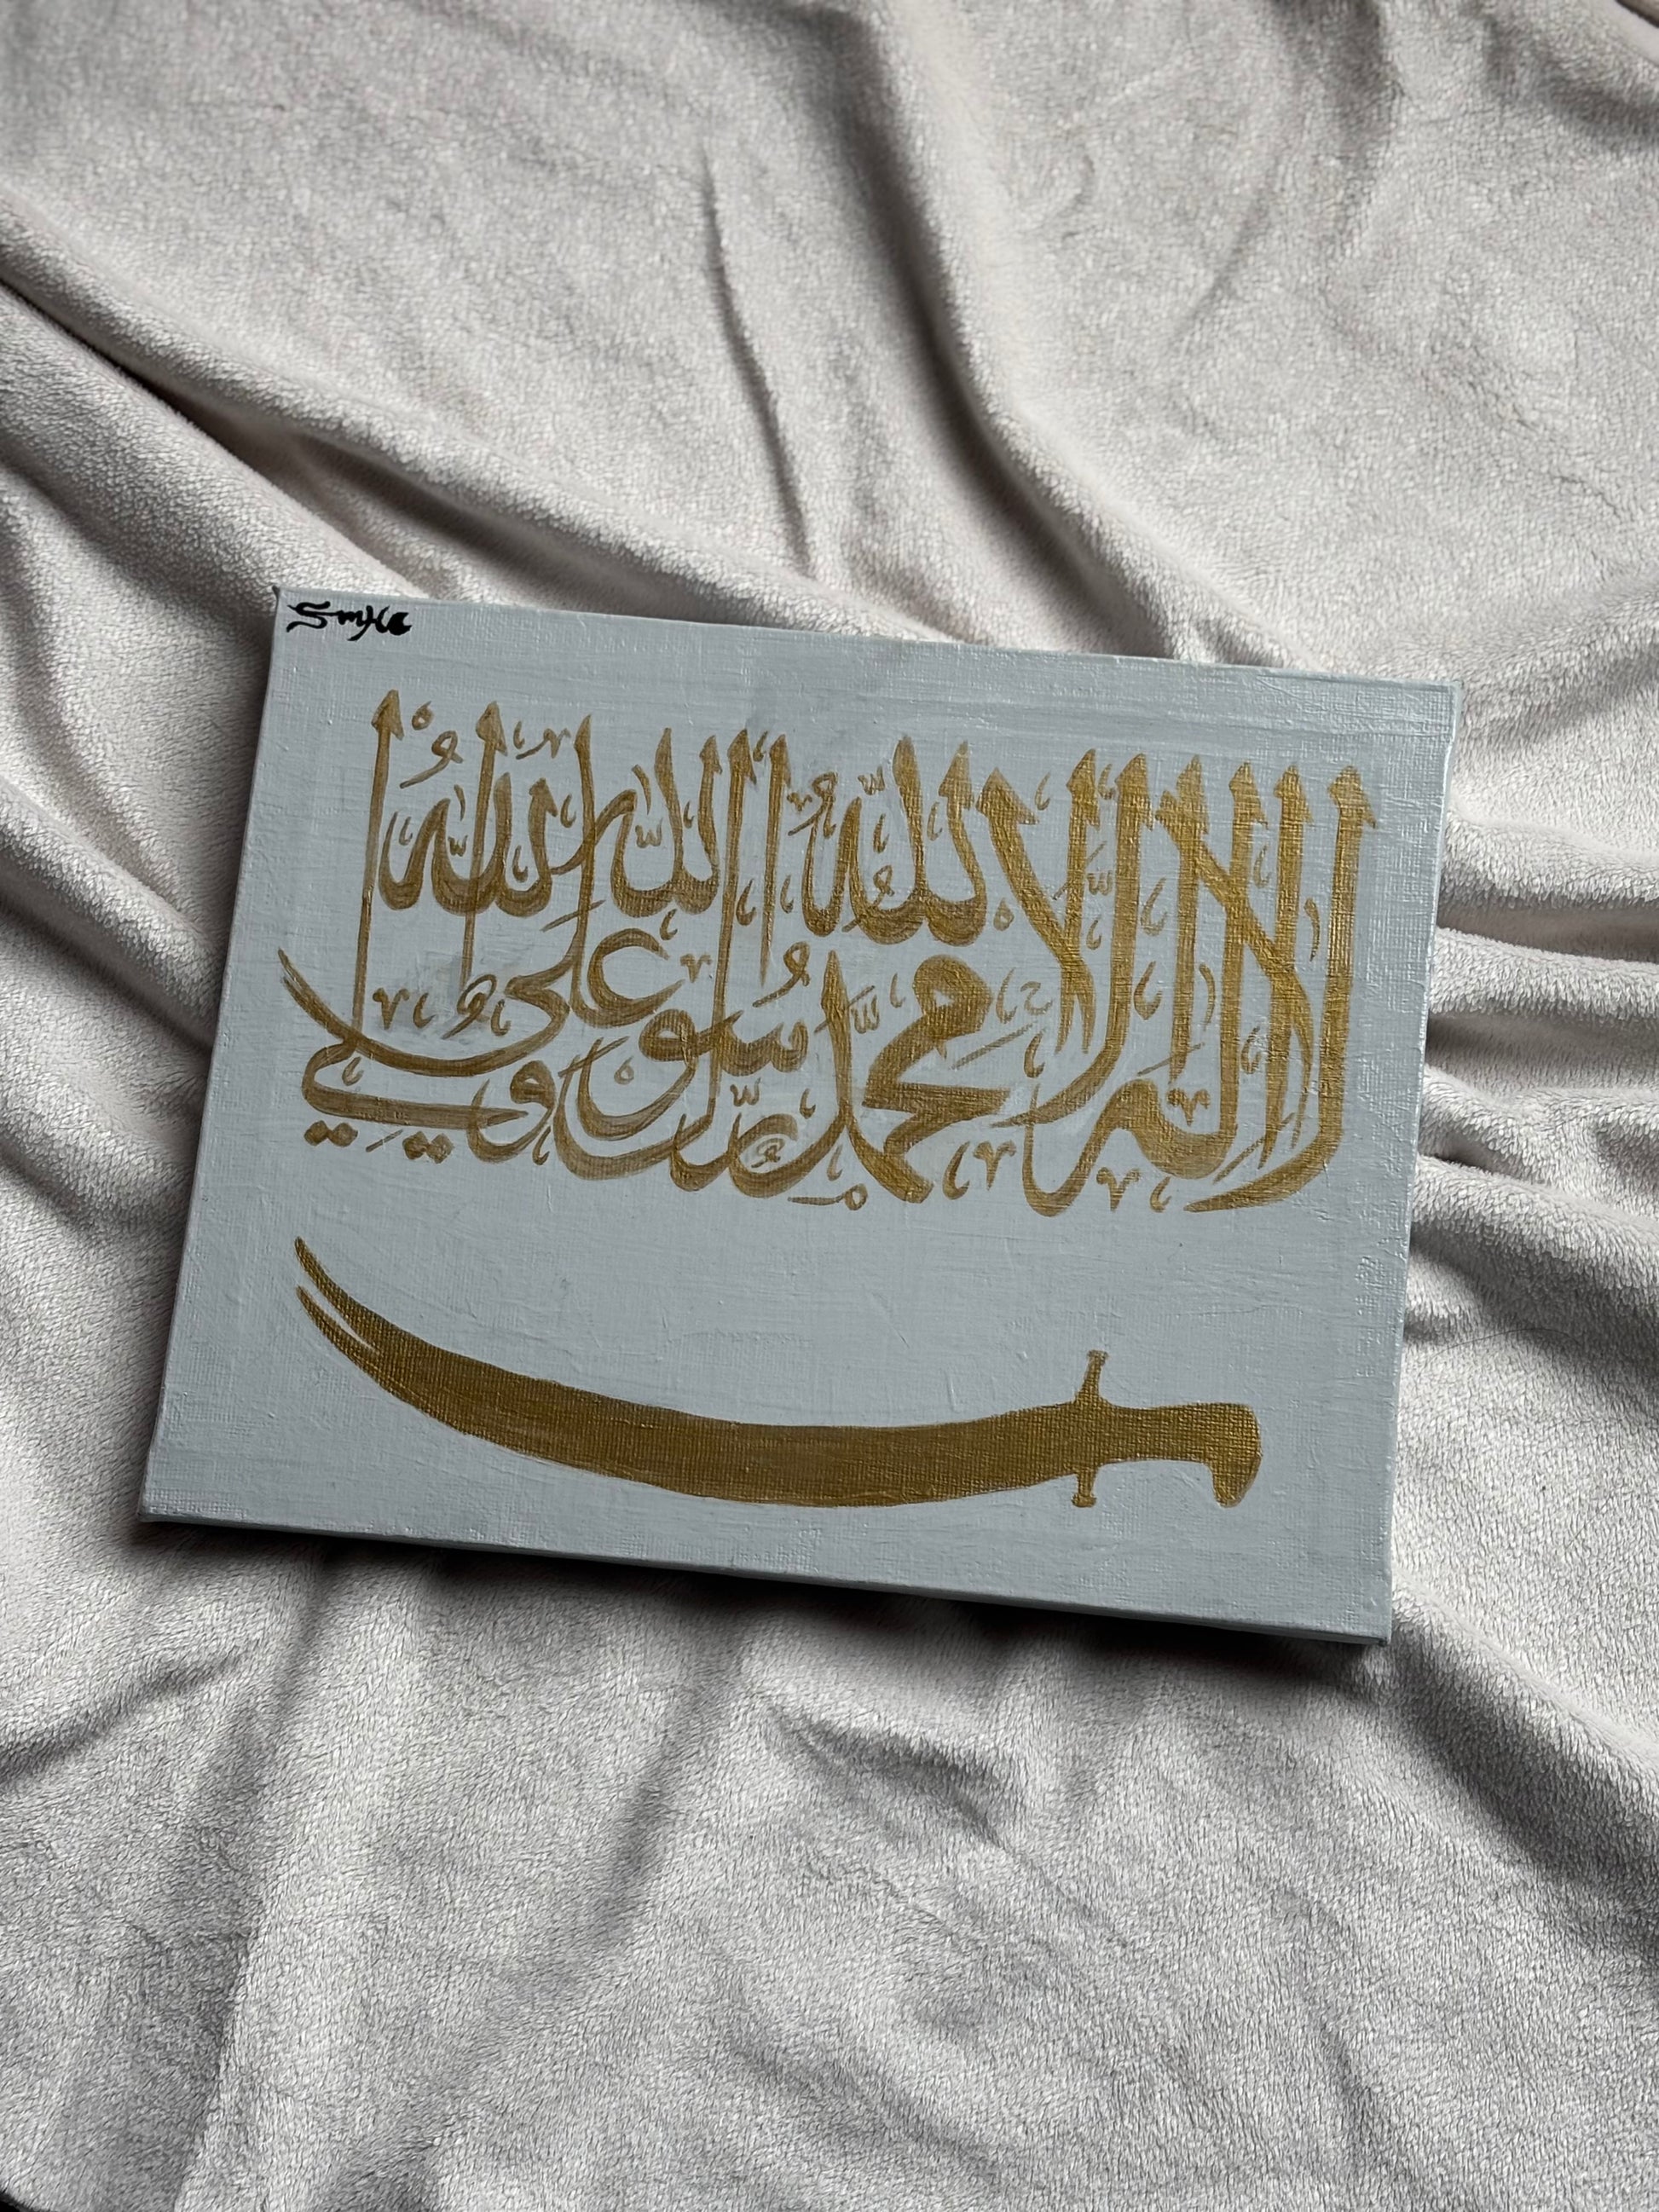 SMHC
لا إله إلا الله محمد رسول الله علي ولي الله